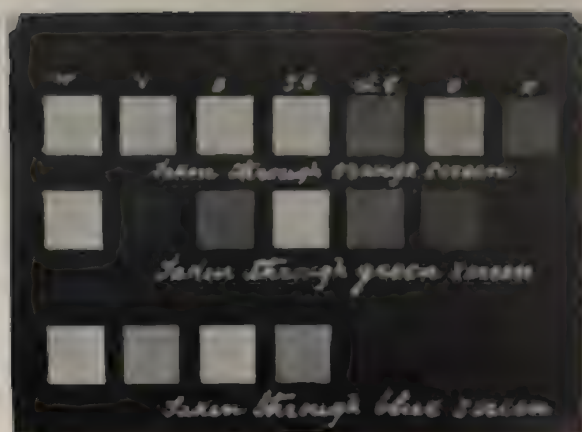 W V B
Taken through orange screen
Taken through green screen
Taken through blue screen